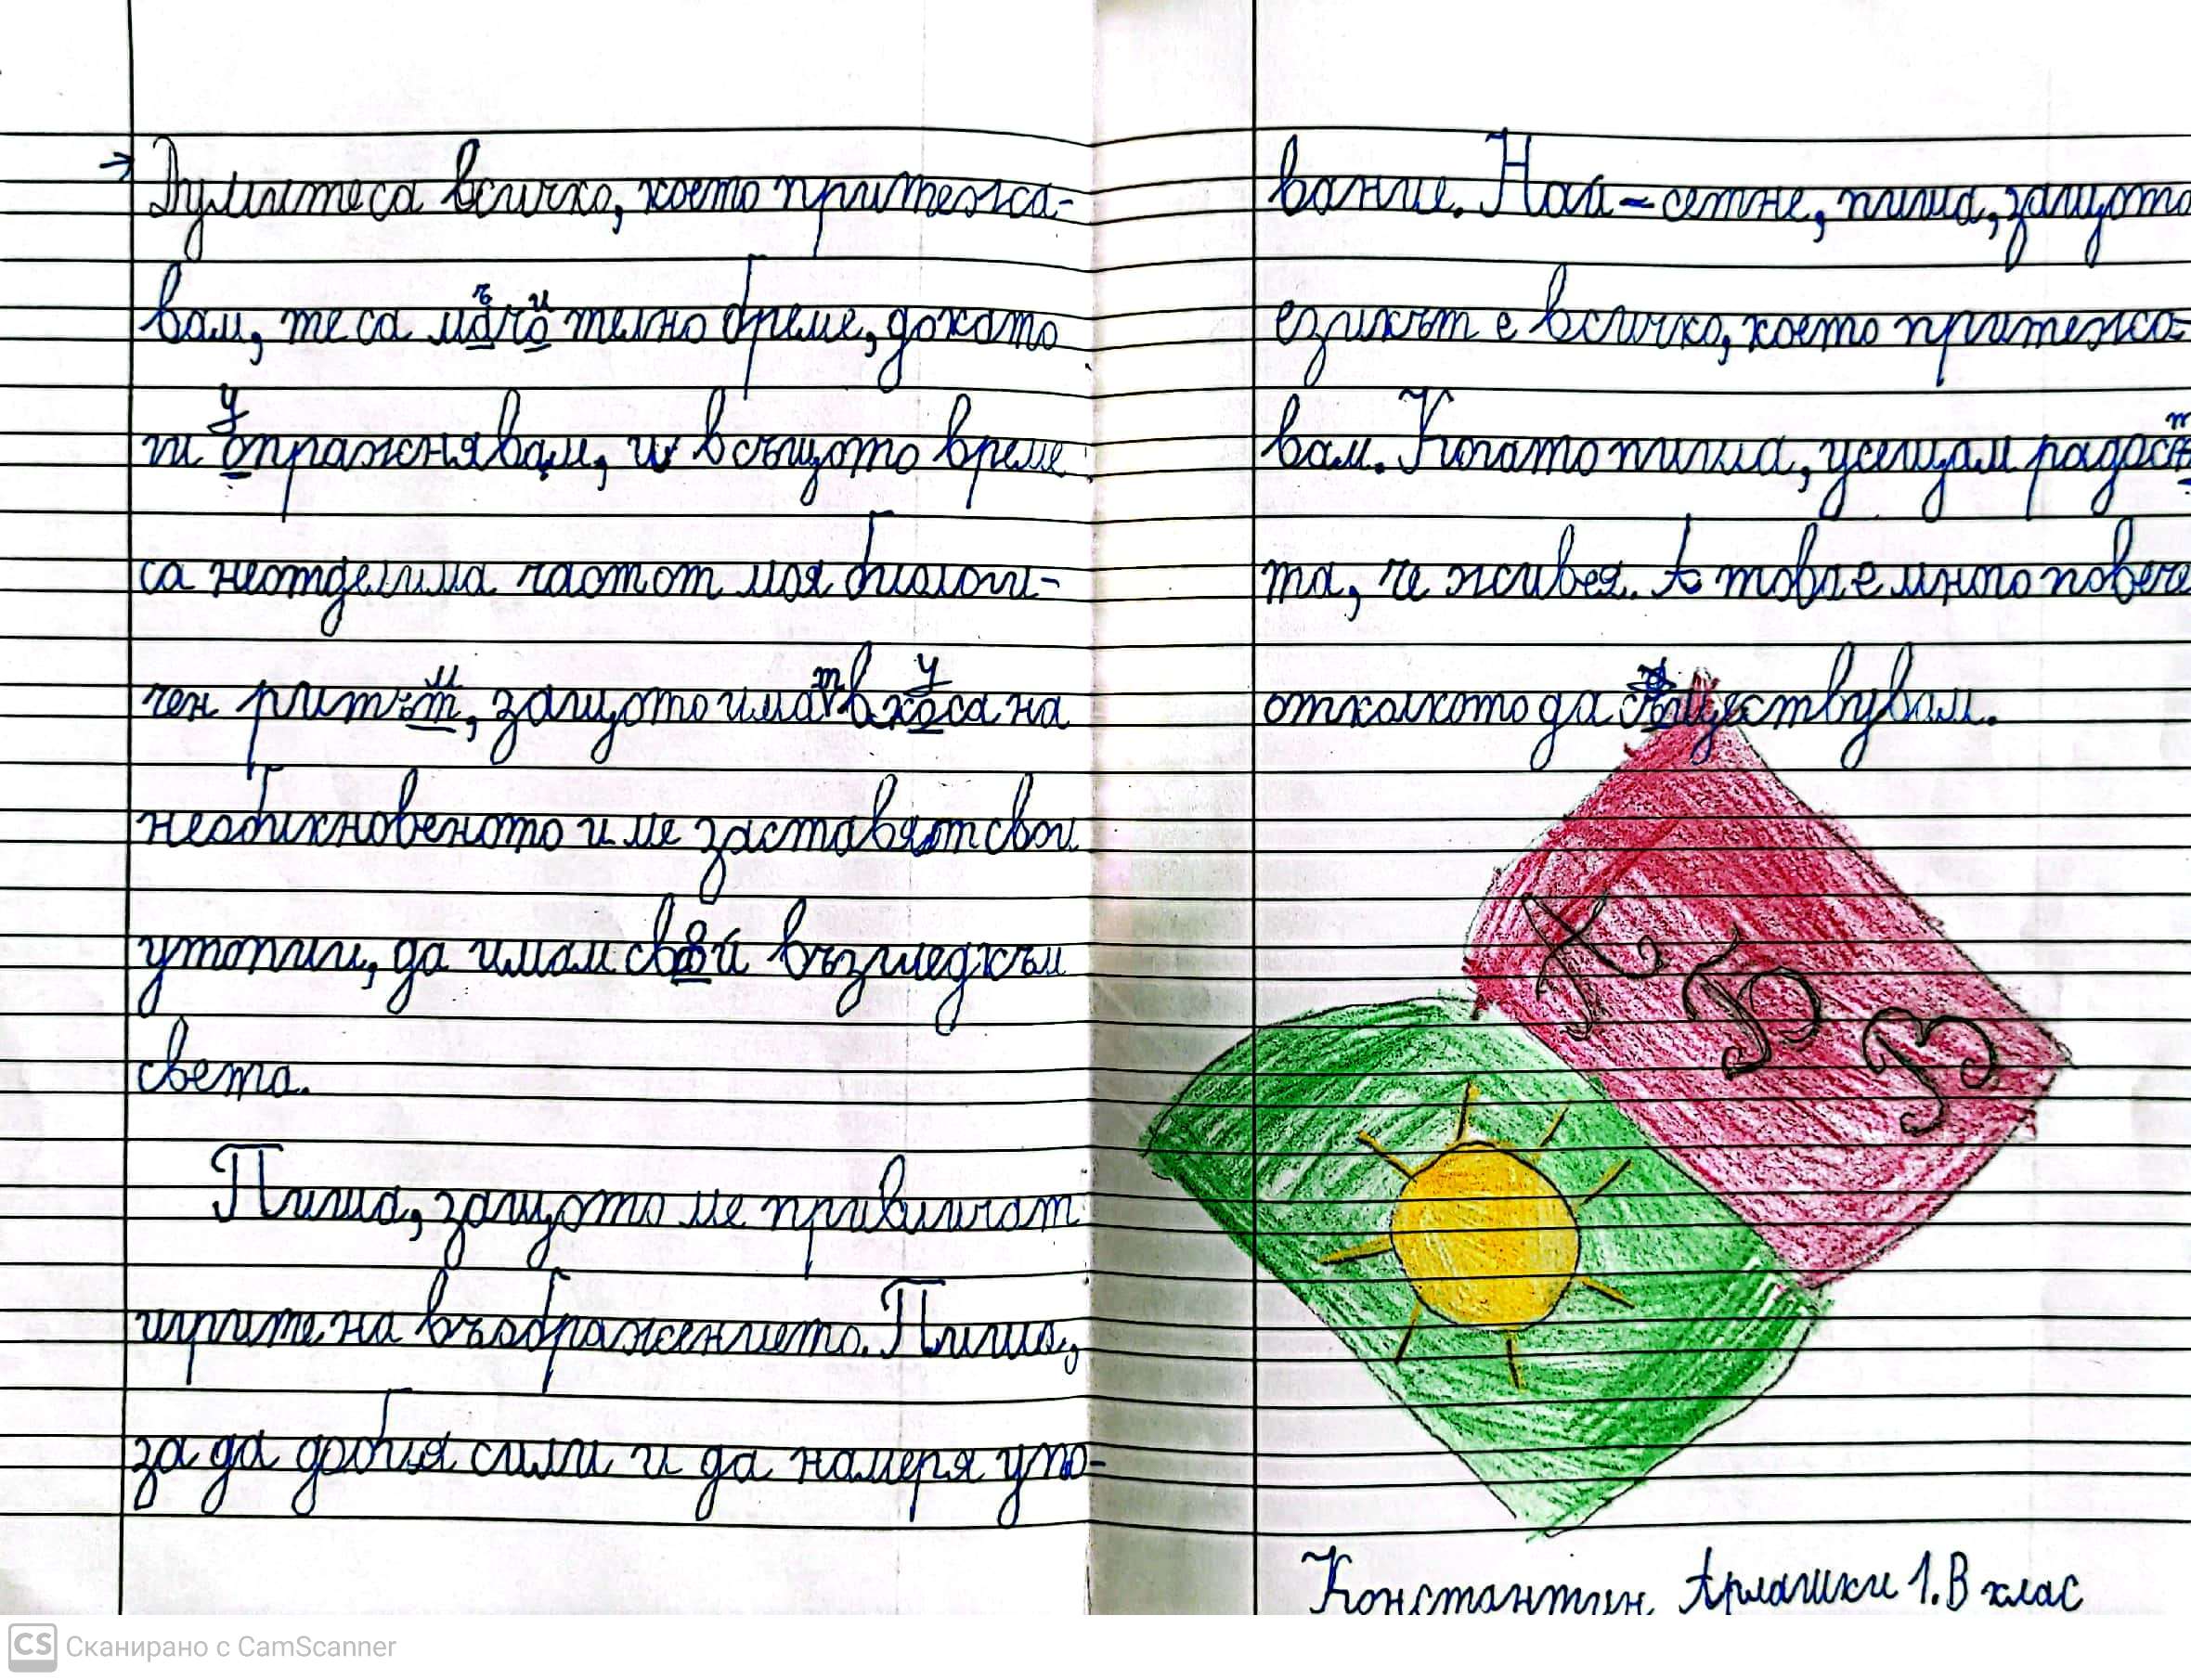 Думите са всичко, което притежа-
вам, те са мъчително бреме, докато
ги упражнявам, и в същото време
са неотделима част от моя биологи-
чен ритъм, защото имат вкуса на
необикновеното и ме заставят свои
утопии, да имам свой възглед към
света.
Пиша, защото ме привличат
игрите на въображението. Пиша,
за да добия сили и да намеря упо-
вание. Най-сетне, пиша, защото
езикът е всичко, което притежа-
вам. Когато пиша, усещам радост
та, че живея. А това е много повече
отколкото да съществувам.
А Б В
Константин Арлашки 1.В клас
CS Сканирано с CamScanner